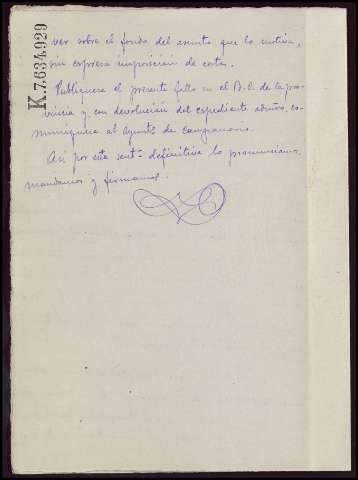 K.7.634.929
ver sobre el fondo del asunto que lo motiva,
sin expresa imposición de costas.
Publíquese el presente fallo en el B.O. de la pro-
vincia y con devolución del expediente admvo, co-
muníquese al Aynto de Campanario.
Así por esta sentª definitiva lo pronunciamos,
mandamos y firmamos.